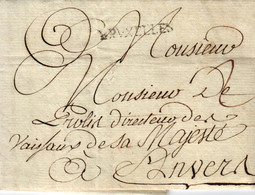 BRUXELLES
Monsieur
Monsieur De
Prolis directeur des
Vaisaux de sa Majesté
à Anvers